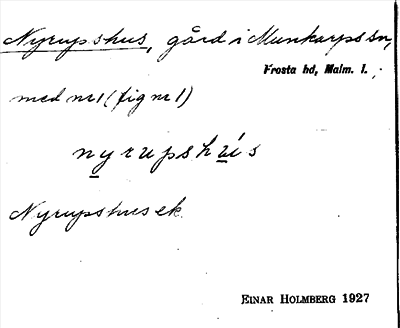 Nyrupshus, gård i Munkarps sn,
Frosta hd, Malm. l.;
med nr 1 (fig nr 1)
nyrupshús
Nyrupshus ek.
EINAR HOLMBERG 1927